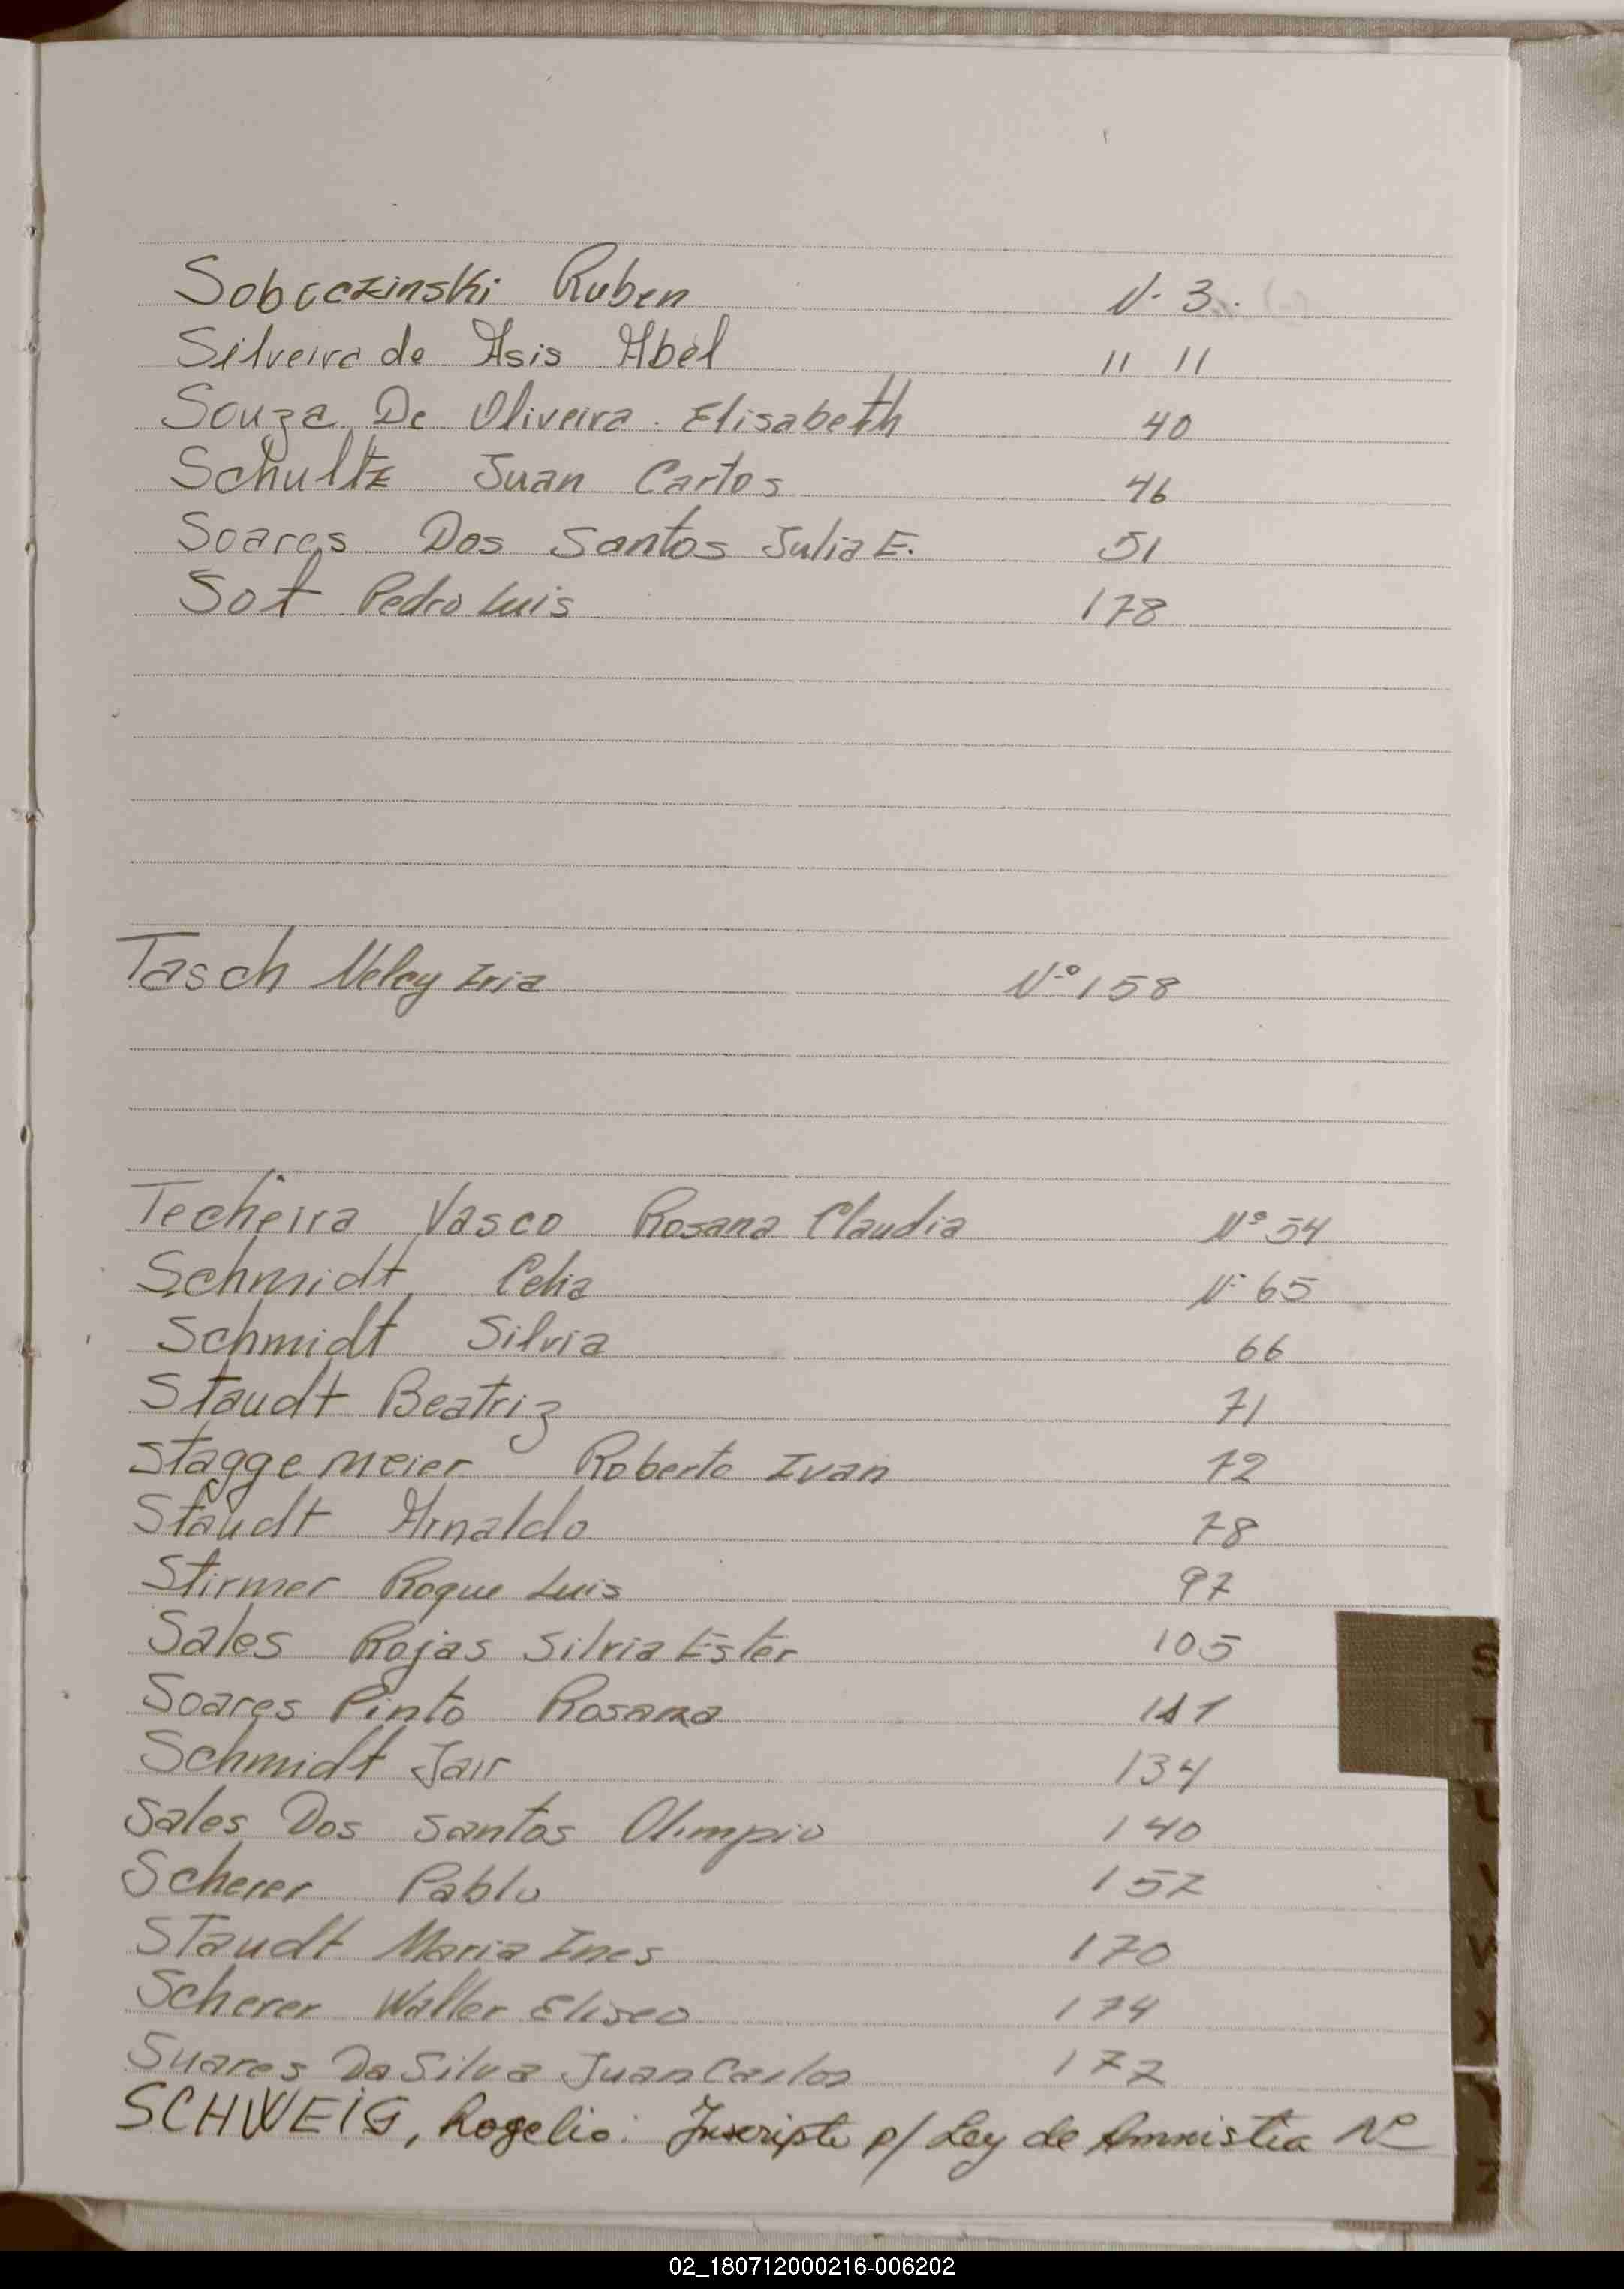 Sobcczinski Ruben N. 3.
Silveira de Asis Abel 11 11
Souza De Oliveira. Elisabeth 40
Schultz Juan Carlos 46
Soares Dos Santos Julia E. 51
Sot Pedro Luis 178
Tasch Neley Iria Nº 158
Techeira Vasco Rosana Claudia Nº 54
Schmidt Celia Nº 65
Schmidt Silvia 66
Staudt Beatriz 71
Staggemeier Roberto Ivan 72
Staudt Arnaldo 78
Stirmer Roque Luis 97
Sales Rojas Silvia Ester 105
Soares Pinto Rosana
Schmidt Jair 134
Sales Dos Santos Olimpio 140
Scherer Pablo 157
Staudt Maria Ines 170
Scherer Walter Eliseo 174
Suares Da Silva Juan Carlos 177
SCHWEIG, Rogelio: Inscripto p/ Ley de Amnistia Nº
S
T
U
V
W
X
Y
Z
02_180712000216-006202